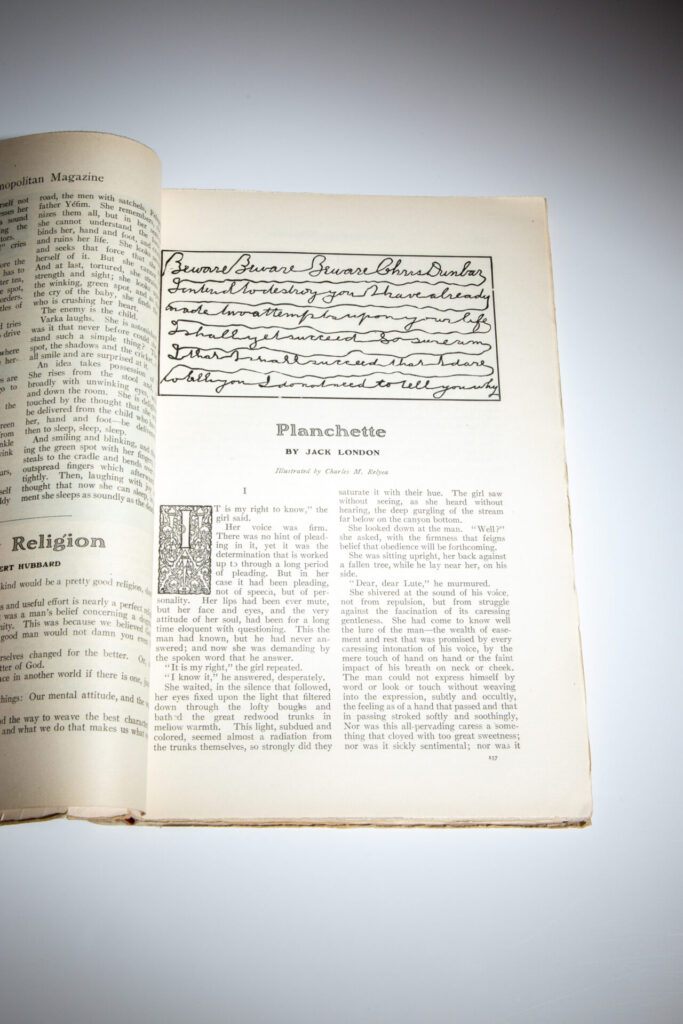 mopolitan Magazine
road, the men with satchels,
father Yéfim. She
nizes them all, but in her
she cannot understand the
binds her, hand and foot, and
and ruins her life. She looks
and seeks that force that
herself of it. But she cannot
And at last, tortured, she
strength and sight; she looks
the winking, green spot, and
the cry of the baby, she finds
who is crushing her heart.
The enemy is the child.
Varka laughs. She is
was it that never before could
stand such a simple thing?
spot, the shadows and the cricket
all smile and are surprised at it.
An idea takes possession
She rises from the stool and
broadly with unwinking eyes,
and down the room. She is
touched by the thought that she
be delivered from the child who
her, hand and foot—be
then to sleep, sleep, sleep.
And smiling and blinking, and
ing the green spot with her fingers
steals to the cradle and bends over
outspread fingers which
tightly. Then, laughing with joy
thought that now she can sleep,
ment she sleeps as soundly as the
Religion
ERT HUBBARD
kind would be a pretty good religion,
s and useful effort is nearly a perfect
was a man's belief concerning a
This was because we believed
good man would not damn you even
rselves changed for the better.
tter of God.
ce in another world if there is one,
hings: Our mental attitude, and the
d the way to weave the best
and what we do that makes us what
Beware Beware Beware Chris Dunbar
I intend to destroy you I have already
made two attempts upon your life
I shall yet succeed So sure am
I that I shall succeed that I dare
to tell you I do not need to tell you why
Planchette
BY JACK LONDON
Illustrated by Charles M. Relyea
I
IT is my right to know," the
girl said.
Her voice was firm.
There was no hint of plead-
ing in it, yet it was the
determination that is worked
up to through a long period
of pleading. But in her
case it had been pleading,
not of speech, but of per-
sonality. Her lips had been ever mute,
but her face and eyes, and the very
attitude of her soul, had been for a long
time eloquent with questioning. This the
man had known, but he had never an-
swered; and now she was demanding by
the spoken word that he answer.
"It is my right," the girl repeated.
"I know it," he answered, desperately.
She waited, in the silence that followed,
her eyes fixed upon the light that filtered
down through the lofty boughs and
bathed the great redwood trunks in
mellow warmth. This light, subdued and
colored, seemed almost a radiation from
the trunks themselves, so strongly did they
saturate it with their hue. The girl saw
without seeing, as she heard without
hearing, the deep gurgling of the stream
far below on the canyon bottom.
She looked down at the man. "Well?"
she asked, with the firmness that feigns
belief that obedience will be forthcoming.
She was sitting upright, her back against
a fallen tree, while he lay near her, on his
side.
"Dear, dear Lute," he murmured.
She shivered at the sound of his voice,
not from repulsion, but from struggle
against the fascination of its caressing
gentleness. She had come to know well
the lure of the man—the wealth of ease-
ment and rest that was promised by every
caressing intonation of his voice, by the
mere touch of hand on hand or the faint
impact of his breath on neck or cheek.
The man could not express himself by
word or look or touch without weaving
into the expression, subtly and occultly,
the feeling as of a hand that passed and that
in passing stroked softly and soothingly.
Nor was this all-pervading caress a some-
thing that cloyed with too great sweetness;
nor was it sickly sentimental; nor was it
157